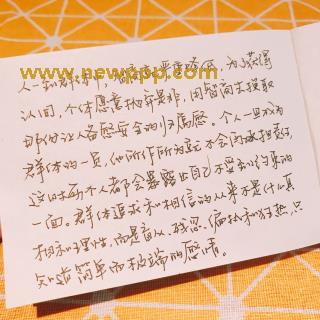 人一到群体中，智商就严重降低，为了获得
www.newppp.com
认同，个体愿意抛弃是非，用智商去换取
那份让人备感安全的归属感。个人一旦成为
群体的一员，他所作所为就不会再承担责任，
这时每个人都会暴露出自己不受到约束的
一面。群体追求和相信的从来不是什么真
相和理性，而是盲从、残忍、偏执和狂热，只
知道简单而极端的感情。